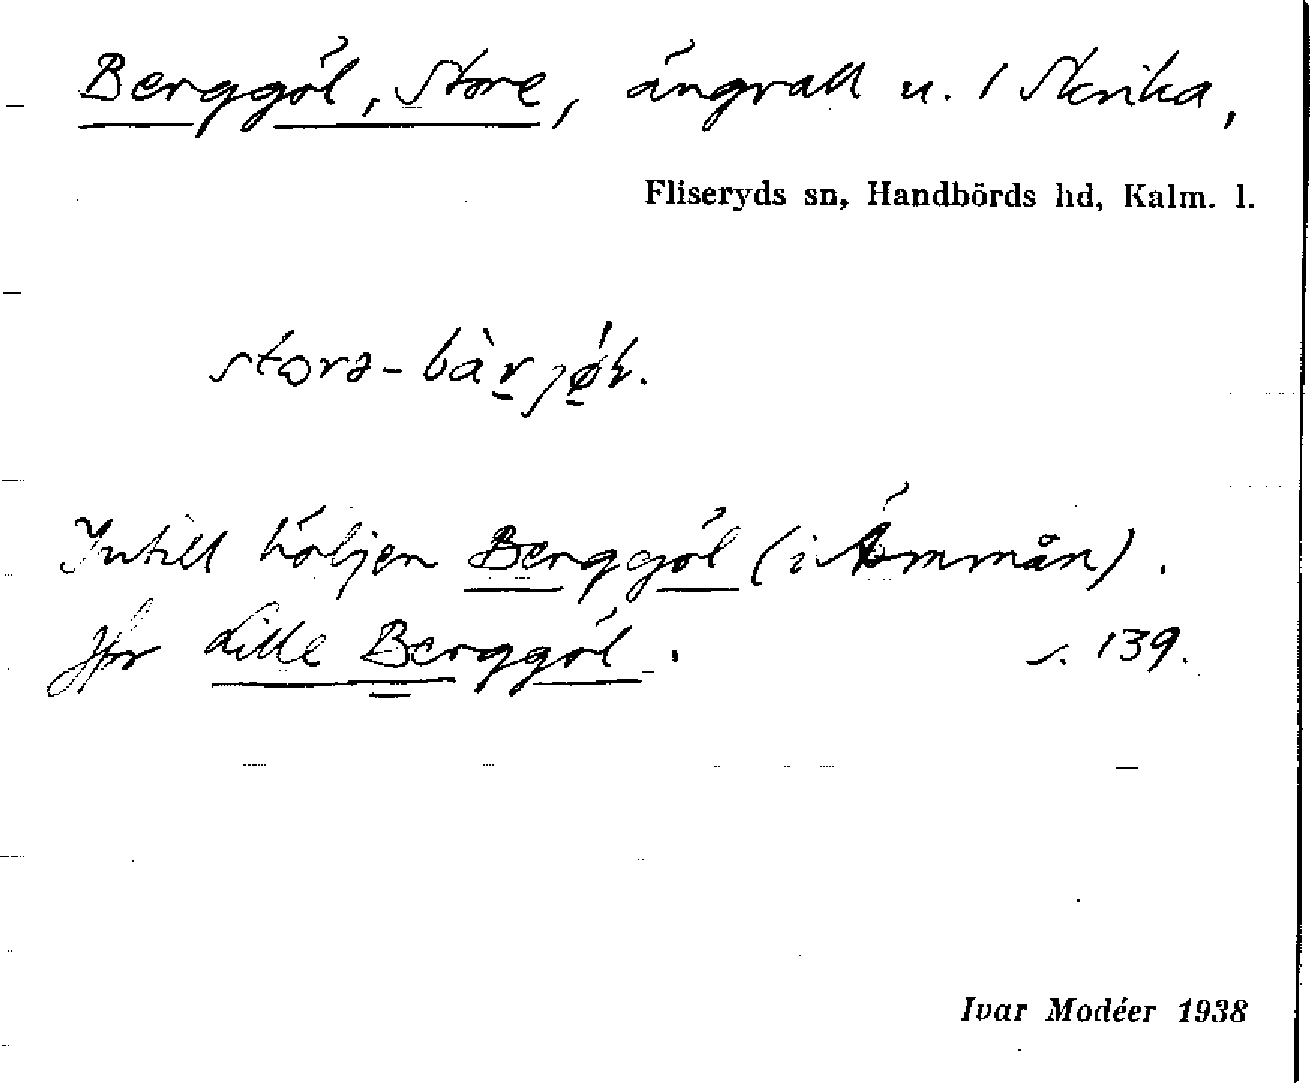 Berggöl, Store, ängvall u. 1 Skrika,
Fliseryds sn, Handbörds hd, Kalm. l.
Intill höljen Berggöl (i Emmån).
Jfr Lille Berggöl. s. 139.
Ivar Modéer 1938